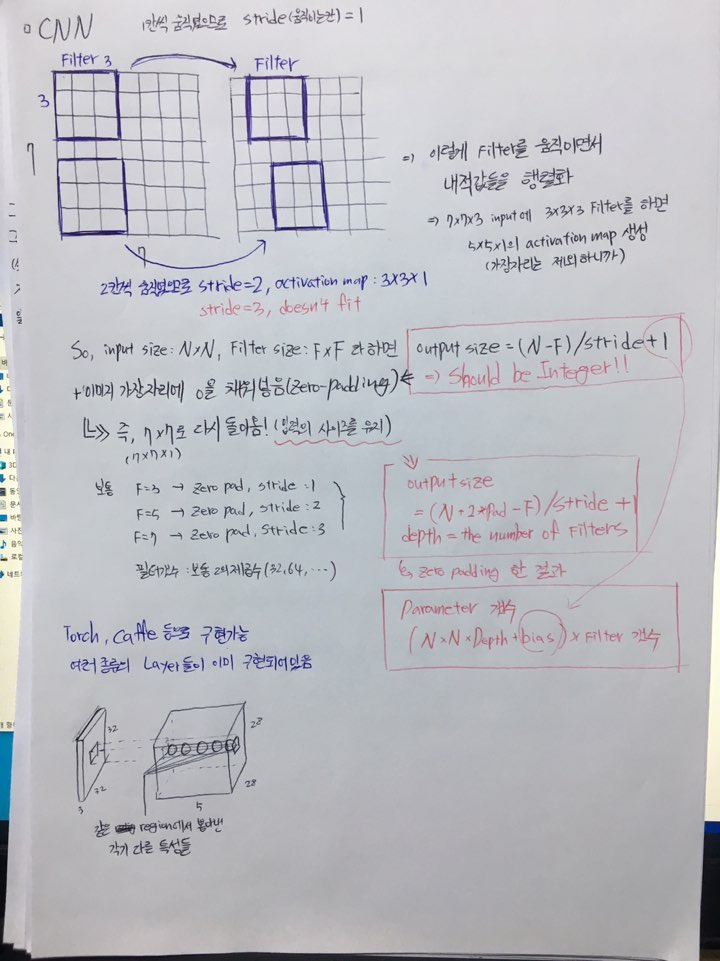 ▫ CNN
1칸씩 움직였으므로 stride(움직이는칸) = 1
Filter 3
Filter
3
7
7
⇒ 이렇게 Filter를 움직이면서
내적값들을 행렬화
⇒ 7x7x3 input에 3x3x3 Filter를 하면
5x5x1의 activation map 생성
(가장자리는 제외하니까)
2칸씩 움직였으므로 stride=2, activation map : 3x3x1
stride=3, doesn't fit
So, input size: NxN, Filter size: FxF 라 하면
output size = (N-F)/stride+1
⇒ should be Integer!!
+이미지 가장자리에 0을 채워넣음(zero-padding)
즉, 7x7로 다시 돌아옴! (입력의 사이즈를 유지)
(7x7x1)
보통 F=3 → zero pad, stride :1
F=5 → zero pad, stride : 2
F=7 → zero pad, stride : 3
필터갯수 : 보통 2의 제곱수 (32, 64, ...)
output size
= (N+2*pad-F)/stride +1
depth = the number of Filters
zero padding 한 결과
Parameter 개수
(N x N x Depth + bias) x Filter 개수
Torch, Caffe 등으로 구현가능
여러 종류의 Layer들이 이미 구현되어있음
32
32
3
28
28
5
같은 region에서 뽑아낸
각기 다른 특성들